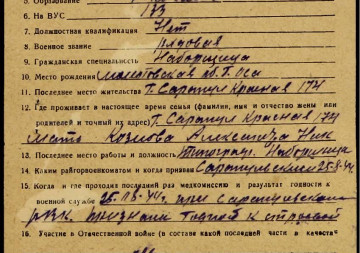 5. Образование
6. На ВУС 173
7. Должностная квалификация Нет
8. Военное звание рядовая
9. Гражданская специальность Наборщица
10. Место рождения Молотовская об. г. Оса
11. Последнее место жительства г. Сарапул Красная 174
12. Где проживает в настоящее время семья (фамилия, имя и отчество жены или
родителей и точный их адрес) г. Сарапул Красная 174
мать Козлова Александра Ник
13. Последнее место работы и должность Типограф. Наборщица
14. Каким райгорвоенкоматом и когда призван Сарапульским 25-8-44
15. Когда и где проходил последний раз медкомиссию и результат годности к
военной службе 25-08-44г. при Сарапульском
РВК. признана годной к строевой
16. Участие в Отечественной войне (в составе какой последней части и качества